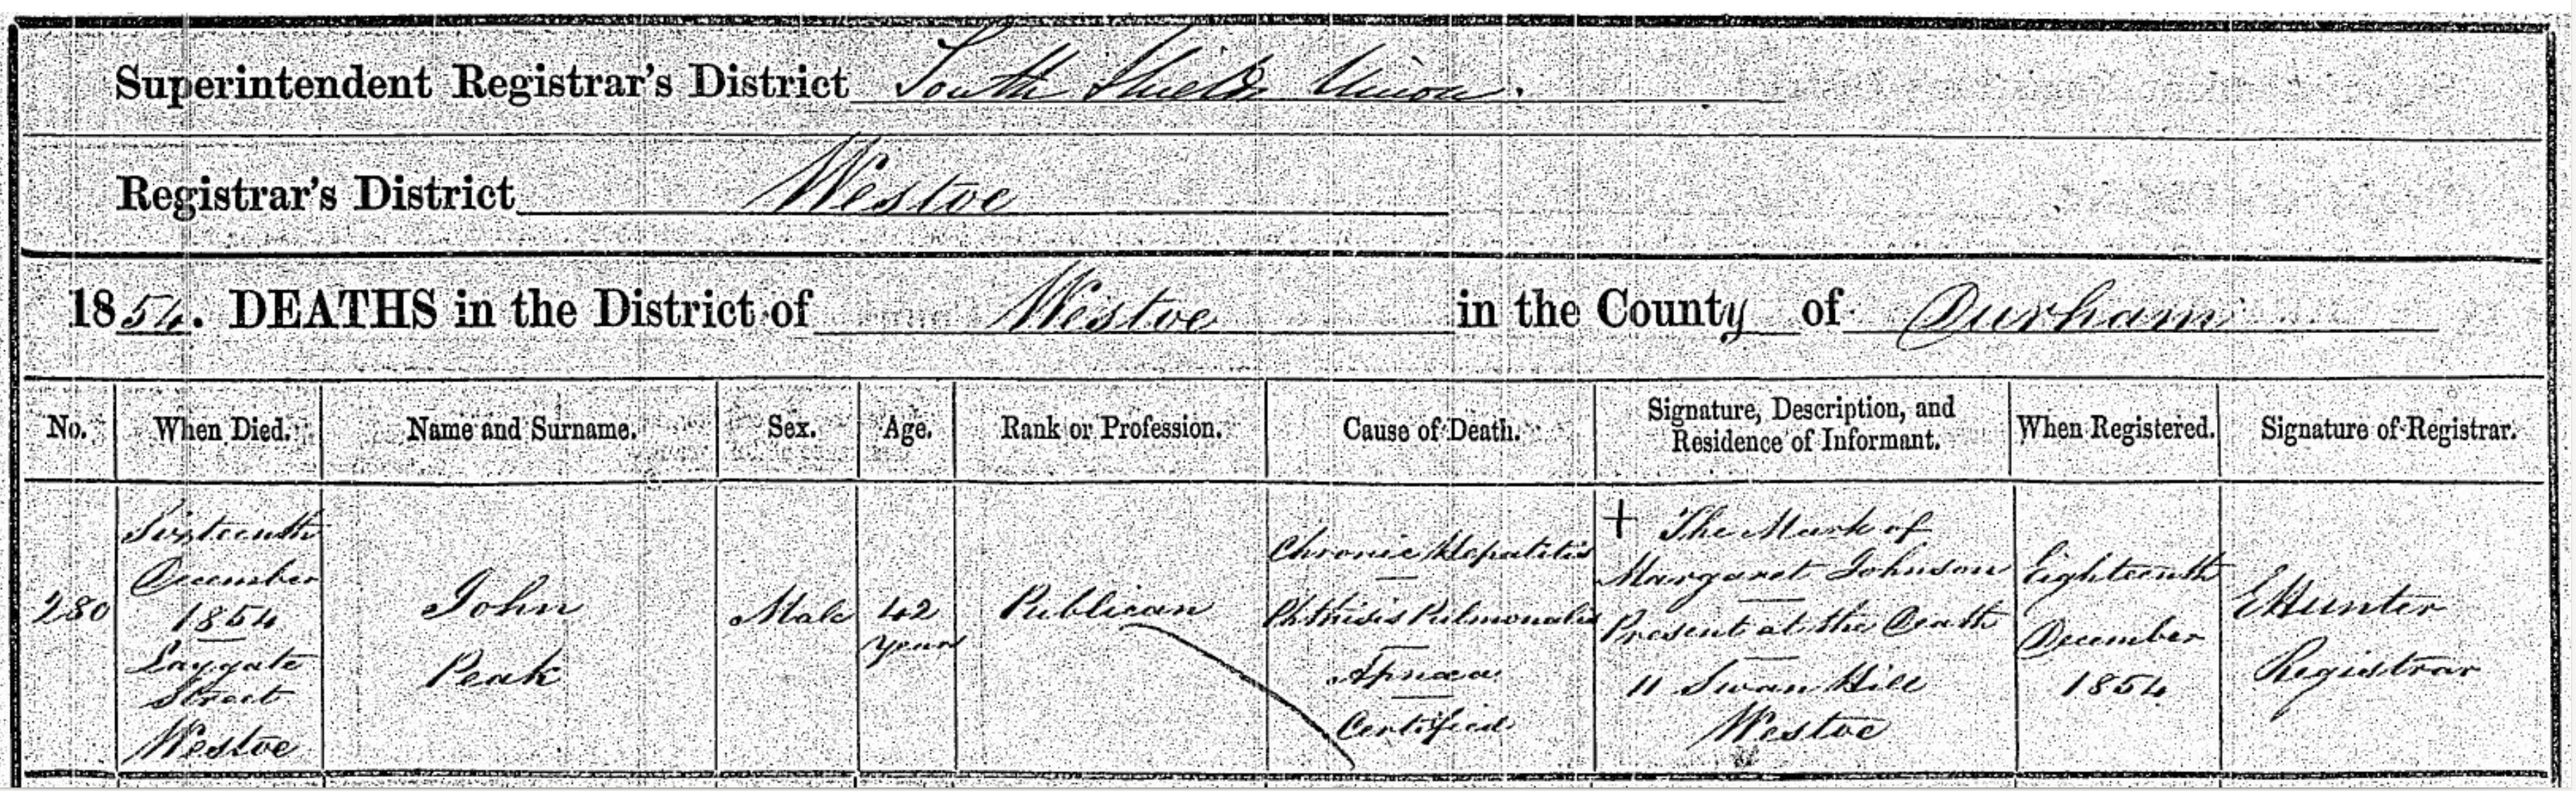 Superintendent Registrar's District South Shields Union.
Registrar's District Westoe
1854. DEATHS in the District of Westoe in the County of Durham
No.
When Died.
Name and Surname.
Sex.
Age.
Rank or Profession.
Cause of Death.
Signature, Description, and
Residence of Informant.
When Registered.
Signature of Registrar.
280
Sixteenth
December
1854
Laygate
Street
Westoe
John
Peak
Male
42
years
Publican
Chronic Hepatitis
Phthisis Pulmonalis
Apnœa
Certified
+ The Mark of
Margaret Johnson
Present at the Death
11 Swan Hill
Westoe
Eighteenth
December
1854
E Hunter
Registrar